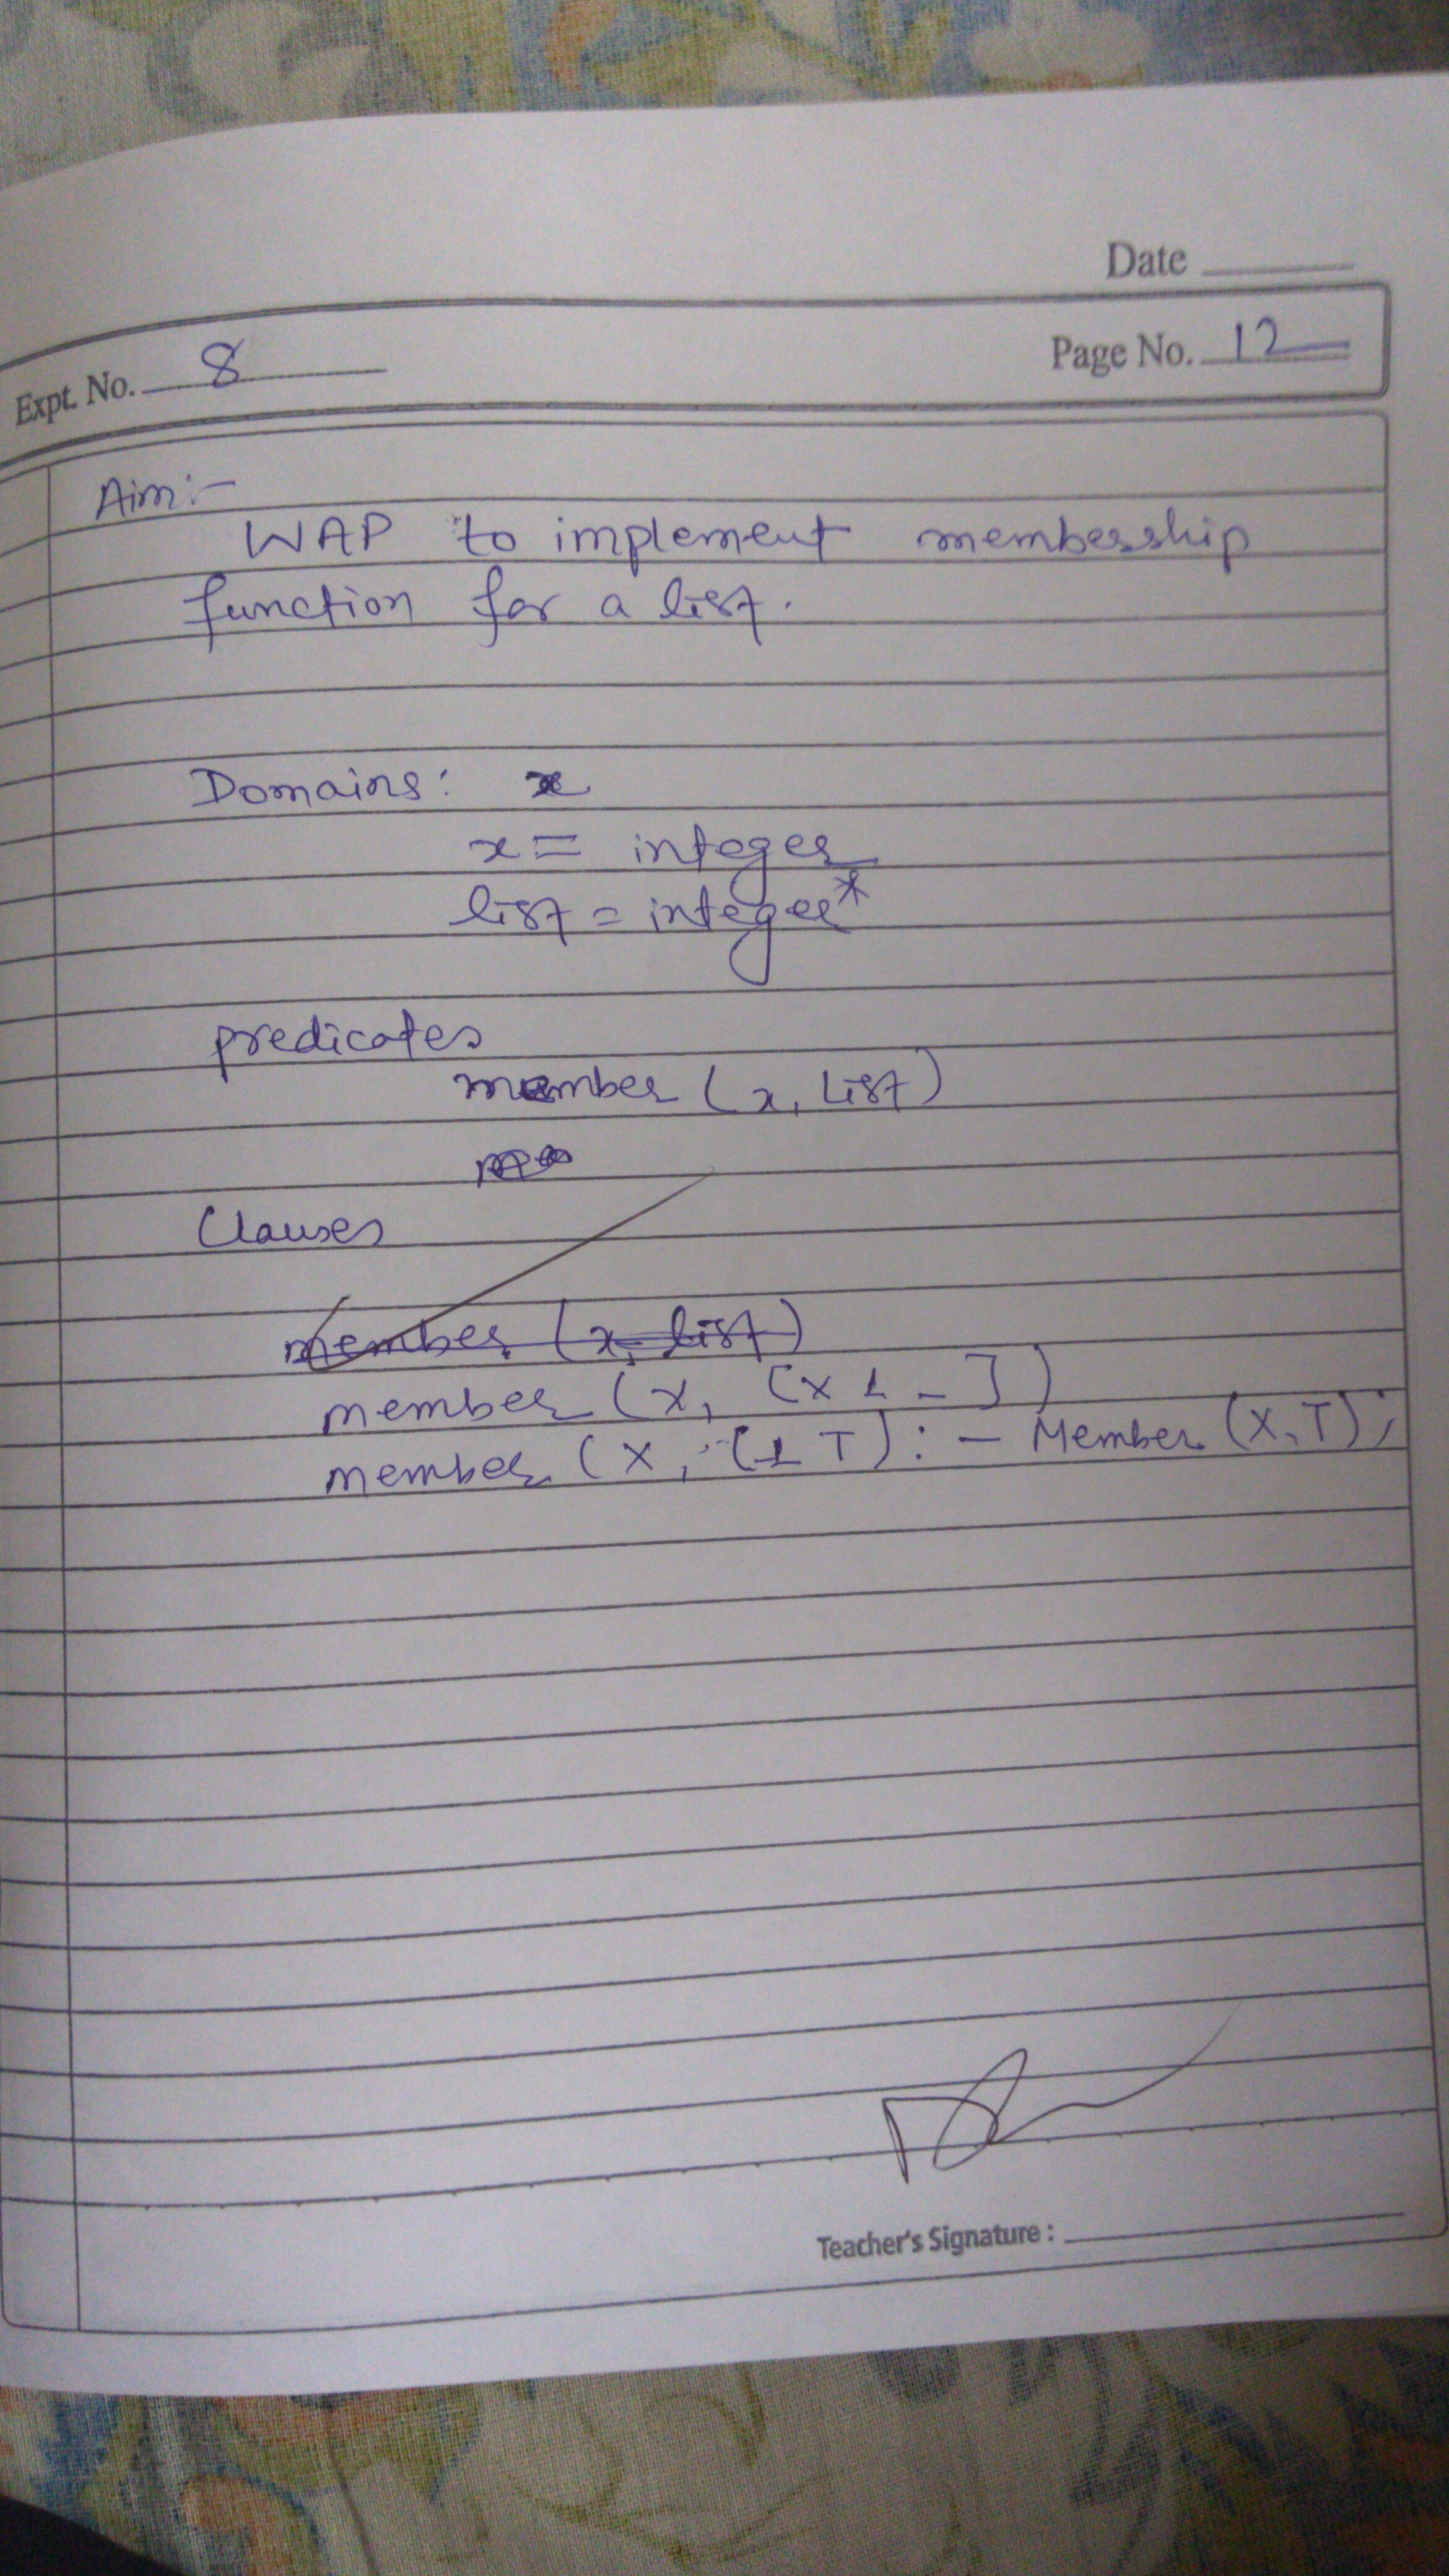 Date
Page No. 12
Expt. No. 8
Aim:-
WAP to implement membership
function for a list.
Domains: x
x = integer
list = integer*
predicates
member (x, list)
Clauses
member (x, list)
member (x, [x 1 _ ])
member (x, (1 T) : - Member (X, T);
Teacher's Signature :